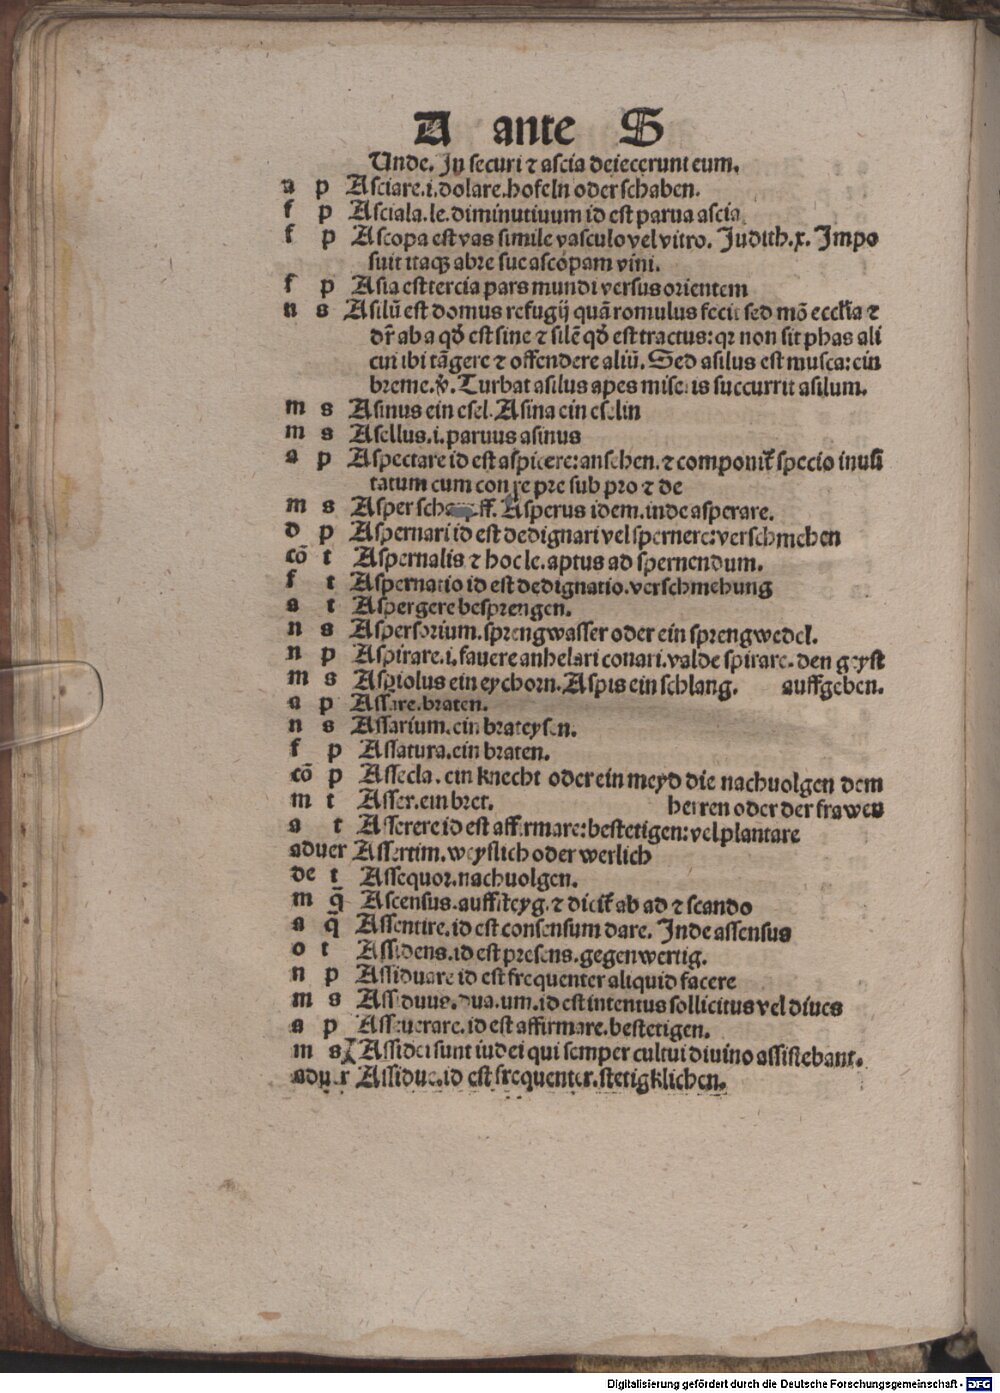 A ante S
Unde. In securi ⁊ ascia deiecerunt eum.
a p Asciare.i.dolare.hofeln oder schaben.
f p Asciala.le.diminutiuum id est parua ascia.
f p Ascopa est vas simile vasculo vel vitro. Judith.x. Impo
suit itaqꝫ abre sue ascopam vini.
f p Asia est tercia pars mundi versus orientem
n s Asilū est domus refugij quā romulus fecit sed mō ecclīa ⁊
dr̄ ab a qđ est sine ⁊ silē qđ est tractus: qꝛ non sit phas ali
cui ibi tāgere ⁊ offendere aliū. Sed asilus est musca: ein
breme.ꝟ. Turbat asilus apes miseris succurrit asilum.
m s Asinus ein esel. Asina ein eselin
m s Asellus.i.paruus asinus
a p Aspectare id est aspicere: ansehen.⁊ componit᷑ specio inusi
tatum cum con re pre sub pro ⁊ de
m s Asper ff. Asperus idem.inde asperare.
d p Aspernari id est dedignari vel spernere: verschmehen
cō t Aspernalis ⁊ hoc le.aptus ad spernendum.
f t Aspernatio id est dedignatio.verschmehung
a t Aspergere besprengen.
n s Aspersorium.sprengwasser oder ein sprengwedel.
n p Aspirare.i.fauere anhelari conari.valde spirare.den geyst
m s Aspiolus ein eychorn. Aspis ein schlang. auffgeben.
a p Assare.braten.
n s Assarium.ein brateysen.
f p Assatura.ein braten.
cō p Assecla.ein knecht oder ein meyd die nachuolgen dem
m t Asser.ein bret. herren oder der frawen
a t Asserere id est affirmare: bestetigen: vel plantare
aduer Assertim.weyslich oder werlich
de t Assequor.nachuolgen.
m q̄ Ascensus.auffsteyg.⁊ dicit᷑ ab ad ⁊ scando
a q̄ Assentire.id est consensum dare. Inde assensus
o t Assidens.id est presens.gegenwertig.
n p Assiduare id est frequenter aliquid facere
m s Assiduus.dua.um.id est intentus sollicitus vel diues
a p Asseuerare.id est affirmare.bestetigen.
m s Assidei sunt iudei qui semper cultui diuino assistebant.
aduer Assidue.id est frequenter.stetigklichen.
Digitalisierung gefördert durch die Deutsche Forschungsgemeinschaft - DFG